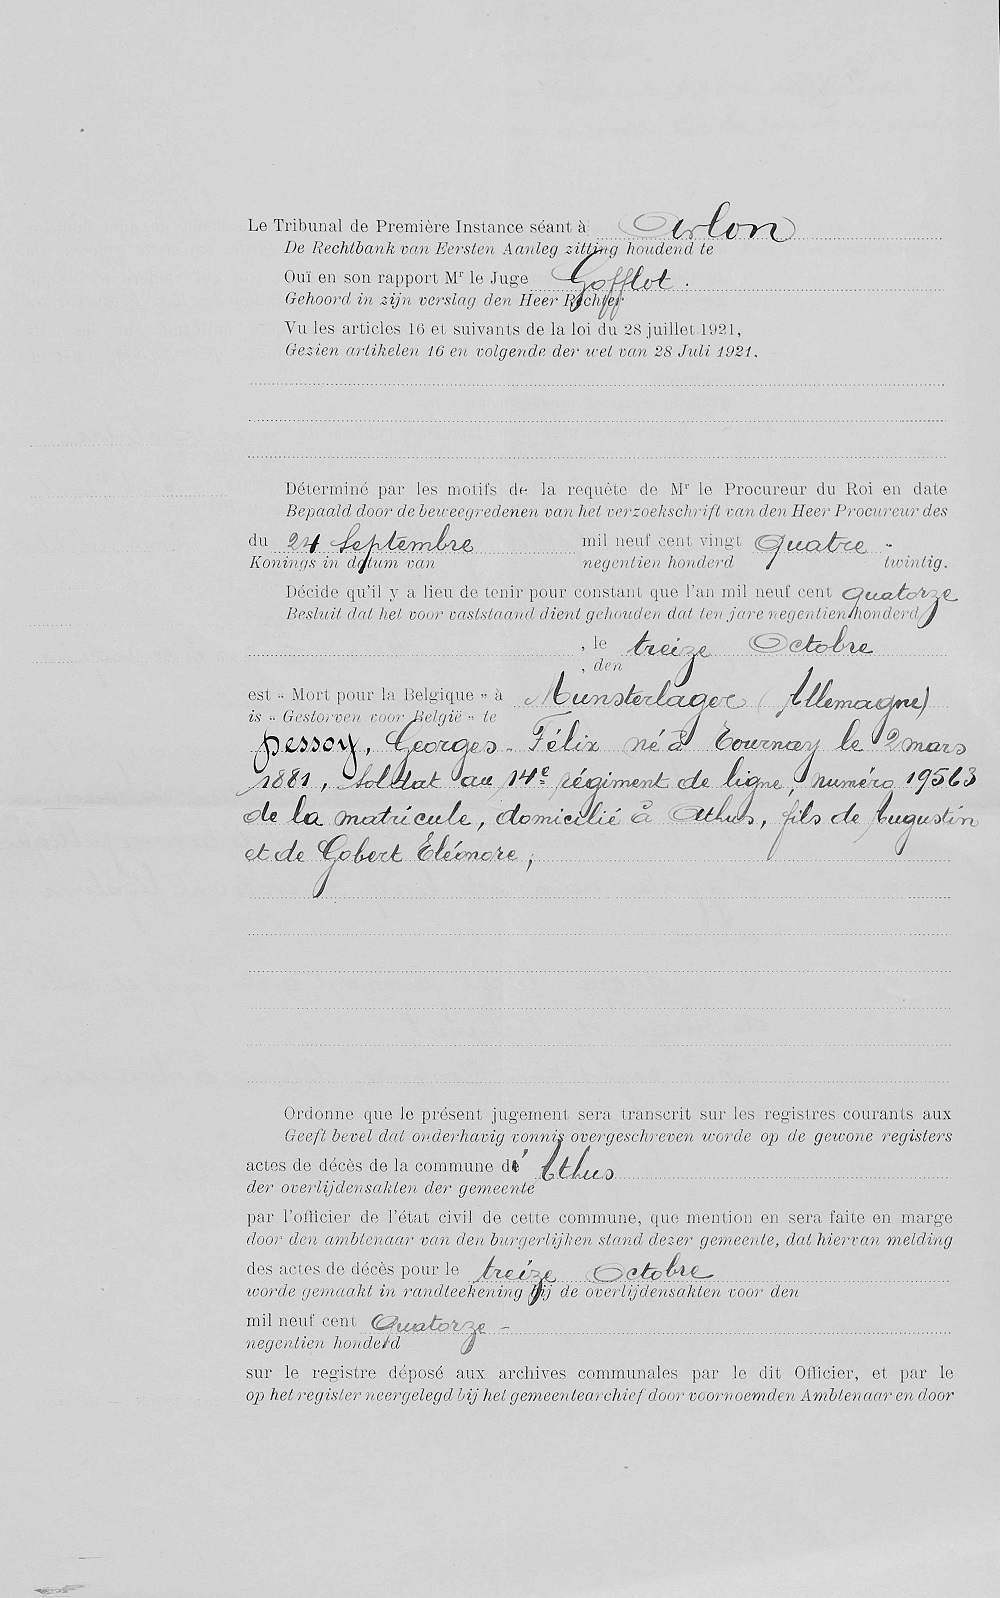 Le Tribunal de Première Instance séant à Arlon
De Rechtbank van Eersten Aanleg zitting houdend te
Ouï en son rapport Mr le Juge Gofflot.
Gehoord in zijn verslag den Heer Rechter
Vu les articles 16 et suivants de la loi du 28 juillet 1921,
Gezien artikelen 16 en volgende der wet van 28 Juli 1921.
Déterminé par les motifs de la requête de Mr le Procureur du Roi en date
Bepaald door de beweegredenen van het verzoekschrift van den Heer Procureur des
du 24 Septembre mil neuf cent vingt Quatre -
Konings in datum van negentien honderd twintig.
Décide qu'il y a lieu de tenir pour constant que l'an mil neuf cent quatorze
Besluit dat het voor vaststaand dient gehouden dat ten jare negentien honderd
, le treize Octobre
, den
est « Mort pour la Belgique » à Munsterlager (Allemagne)
is « Gestorven voor België » te
Dessoy, Georges-Félix né à Tournay le 2 mars
1881, soldat au 14e régiment de ligne, numéro 19563
de la matricule, domicilié à Athus, fils de Augustin
et de Gobert Eléonore,
Ordonne que le présent jugement sera transcrit sur les registres courants aux
Geeft bevel dat onderhavig vonnis overgeschreven worde op de gewone registers
actes de décès de la commune d' Athus
der overlijdensakten der gemeente
par l'officier de l'état civil de cette commune, que mention en sera faite en marge
door den ambtenaar van den burgerlijken stand dezer gemeente, dat hiervan melding
des actes de décès pour le treize Octobre
worde gemaakt in randteekening bij de overlijdensakten voor den
mil neuf cent Quatorze -
negentien honderd
sur le registre déposé aux archives communales par le dit Officier, et par le
op het register neergelegd bij het gemeentearchief door voornoemden Ambtenaar en door